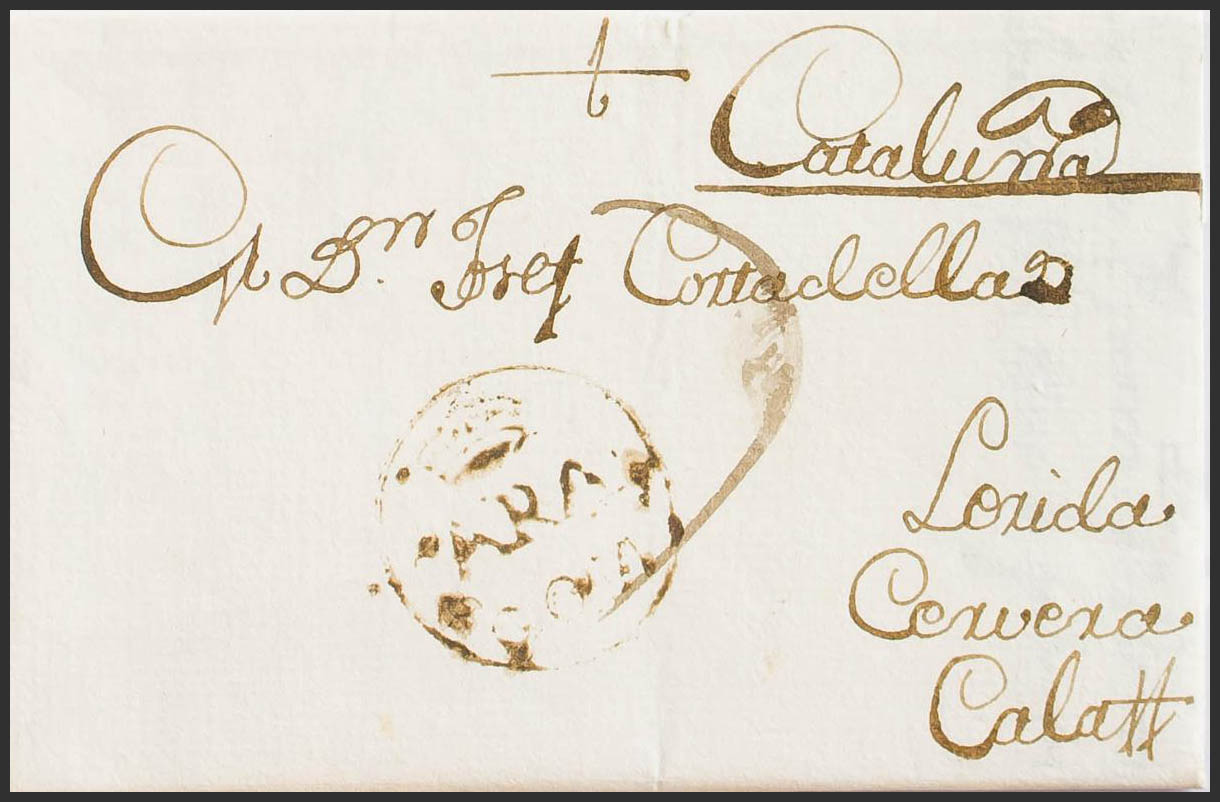 Cataluña
A Dn. Josef Cortadellas
Lerida
Cervera
Calaff